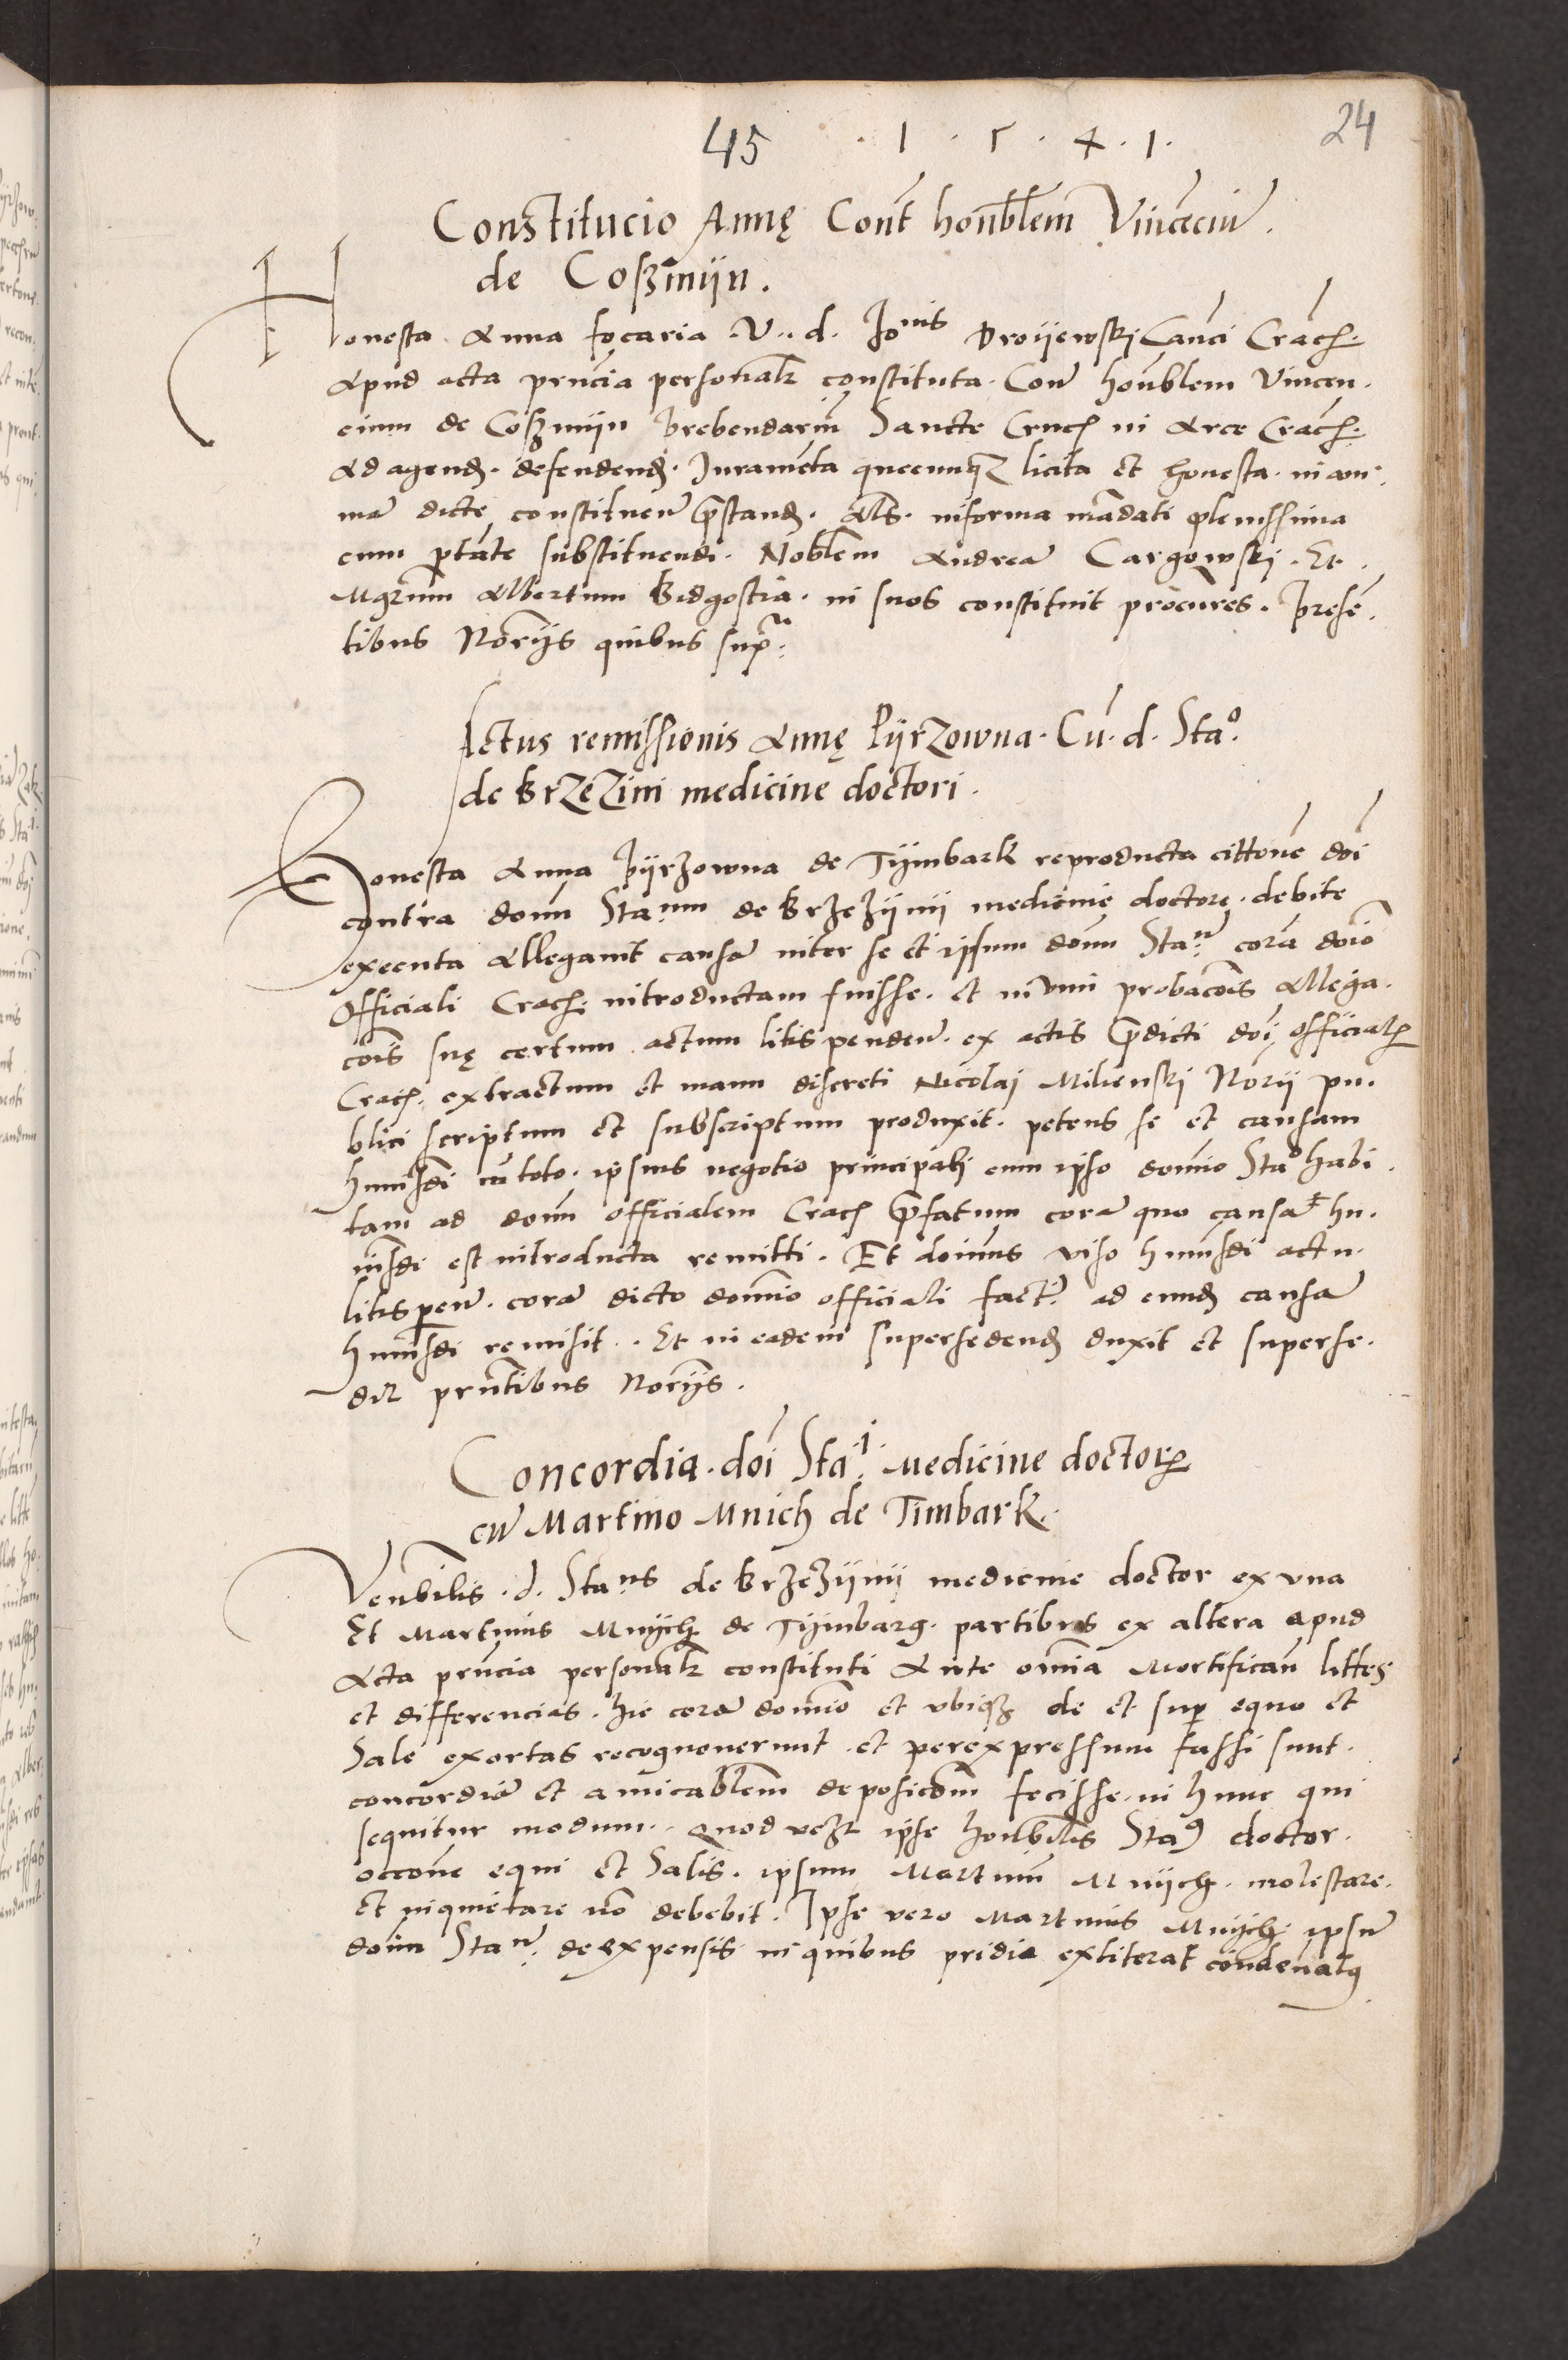 45 . 1 . 5 . 4 . 1 . 24
Constitucio Annę Cont honblem Vincẽciũ.
de Coßmijn.
Honesta Anna focaria . V. d. Joãnis Droijewski Canci Crach.
Apud acta pruncia personalr constituta. Conr honblem Vincen.
cium de Coßmijn prebendariũ Sancte Crucis in Arce Crach.
Ad agend. defendend. Juramẽta quecumqz licita et honesta. in ani.
mã dicte constituen prestand. Als. informa mãdati plenissima
cum ptãte substituendi. Noblem Andreã Cargowski. Et.
Mgrum Albertum Bidgostia. in suos constituit procures. Presẽ.
tibus Norijs quibus supr.
Actus remissionis Annę Pijrzowna. Cũ. d. Stao.
de Brzezini medicine doctori.
Honesta Anna pijrzowna de Tijmbark reproducta cittone doi
contra donũ Stanum de Brzezijnij medicine doctorẽ. debite
executa Allegauit causã inter se et ipsum donũ Stanũ corã doio
Officiali Crach. introductam fuisse. et in vim probacois Allega.
cois suę certum actum litis penden. ex actis predicti doi officialis
Crach. extractum et manu discreti Nicolaj Milienski Norij pu.
blici scriptum et subscriptum produxit. petens se et causam
huiusdi cũ toto. ipsius negotio principali cum ipso domio Stao habi.
tam ad donũ officialem Crach prefatum corã quo causa hu.
iusdi est introducta remitti. Et doinus viso huiusdi actu.
litispen. corã dicto domio officiali fact. ad eund causã
huiusdi remisit. Et in eadem supersedend duxit et superse.
dit prntibus Norijs.
Concordia. doi Stai. Medicine doctoris
cũ Martino Mnich de Timbark.
Venbilis. d. Stanus de Brzezijnij medicine doctor ex vna
Et Martinus Mnijch de Tijmbarg. partibus ex altera apud
Acta pruncia personalr constituti Ante omia Mortifican littes
et differencias. hic corã domio et vbiqz de et sup equo et
Sale exortas recognouerunt. et per expressum fassi sunt.
concordiã et amicablem deposicõm fecisse. in hunc qui
sequitur modum. Quod vezt ipse honbilis Sta9 doctor.
occone equi et Salis. ipsum Martinũ Mnijch. molestare.
Et inquietare nõ debebit. Ipse vero Martinus Mnijch ipsũ
doim Stanũ. de expensis in quibus pridiẽ extiterat condenat9